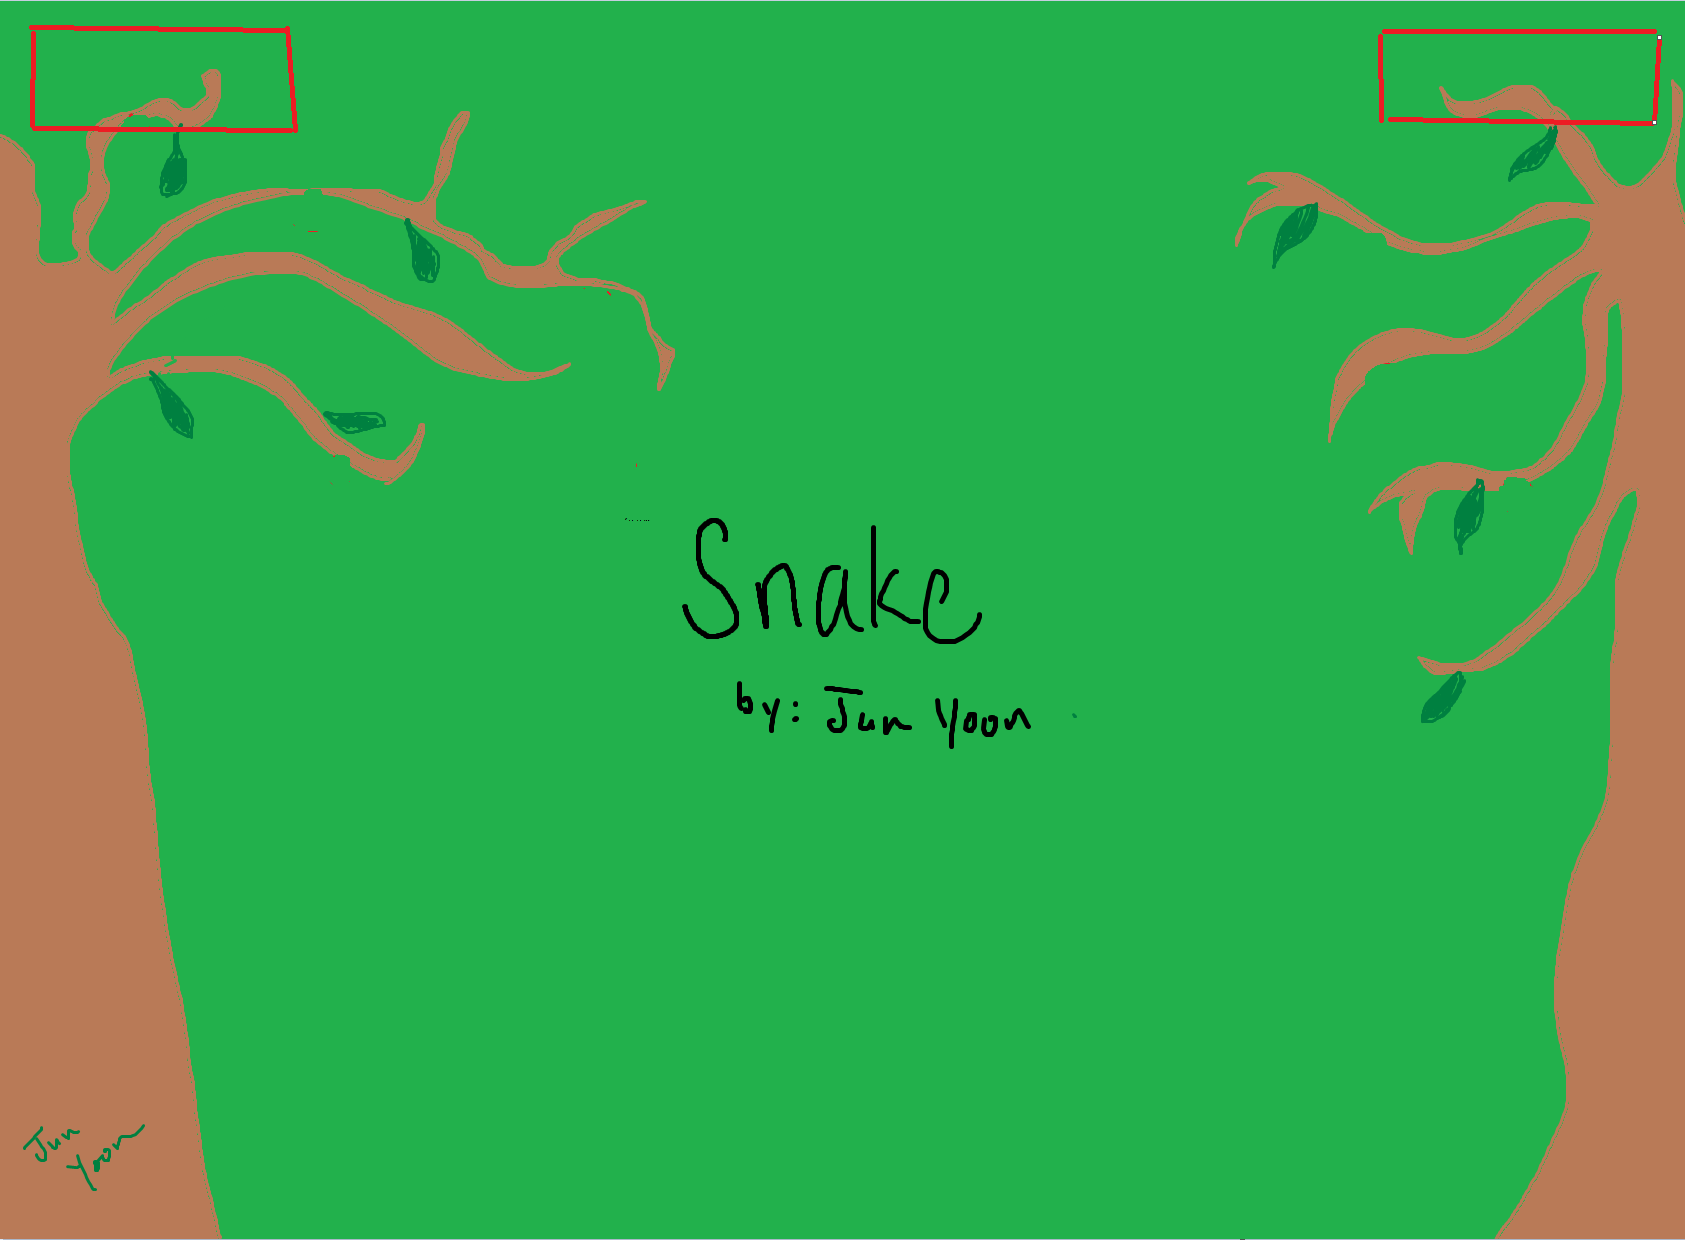 Snake
by: Jun Yoon
Jun
Yoon